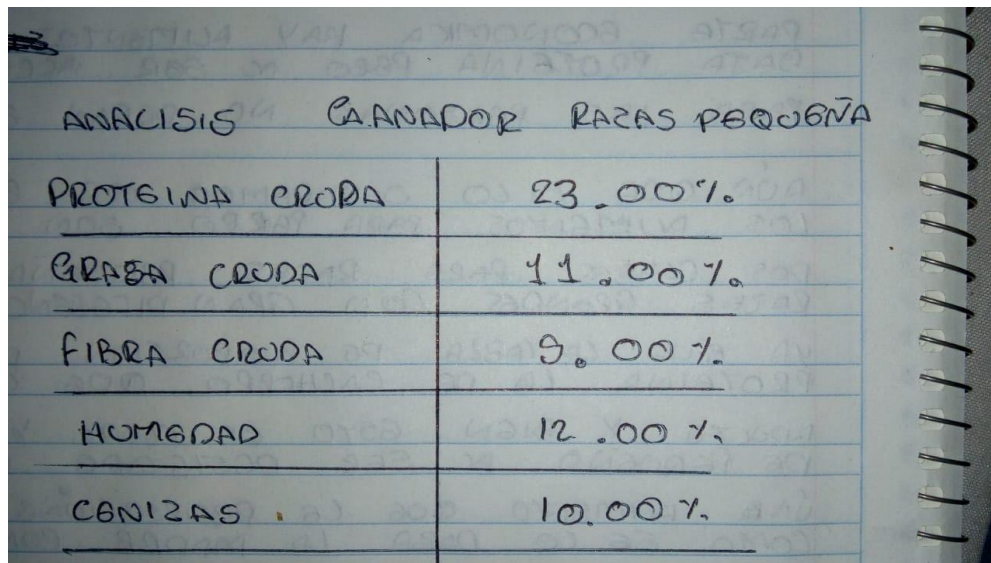 ANALISIS GANADOR RAZAS PEQUEÑA
PROTEINA CRUDA 23.00%
GRASA CRUDA 11.00%
FIBRA CRUDA 9.00%
HUMEDAD 12.00%
CENIZAS. 10.00%